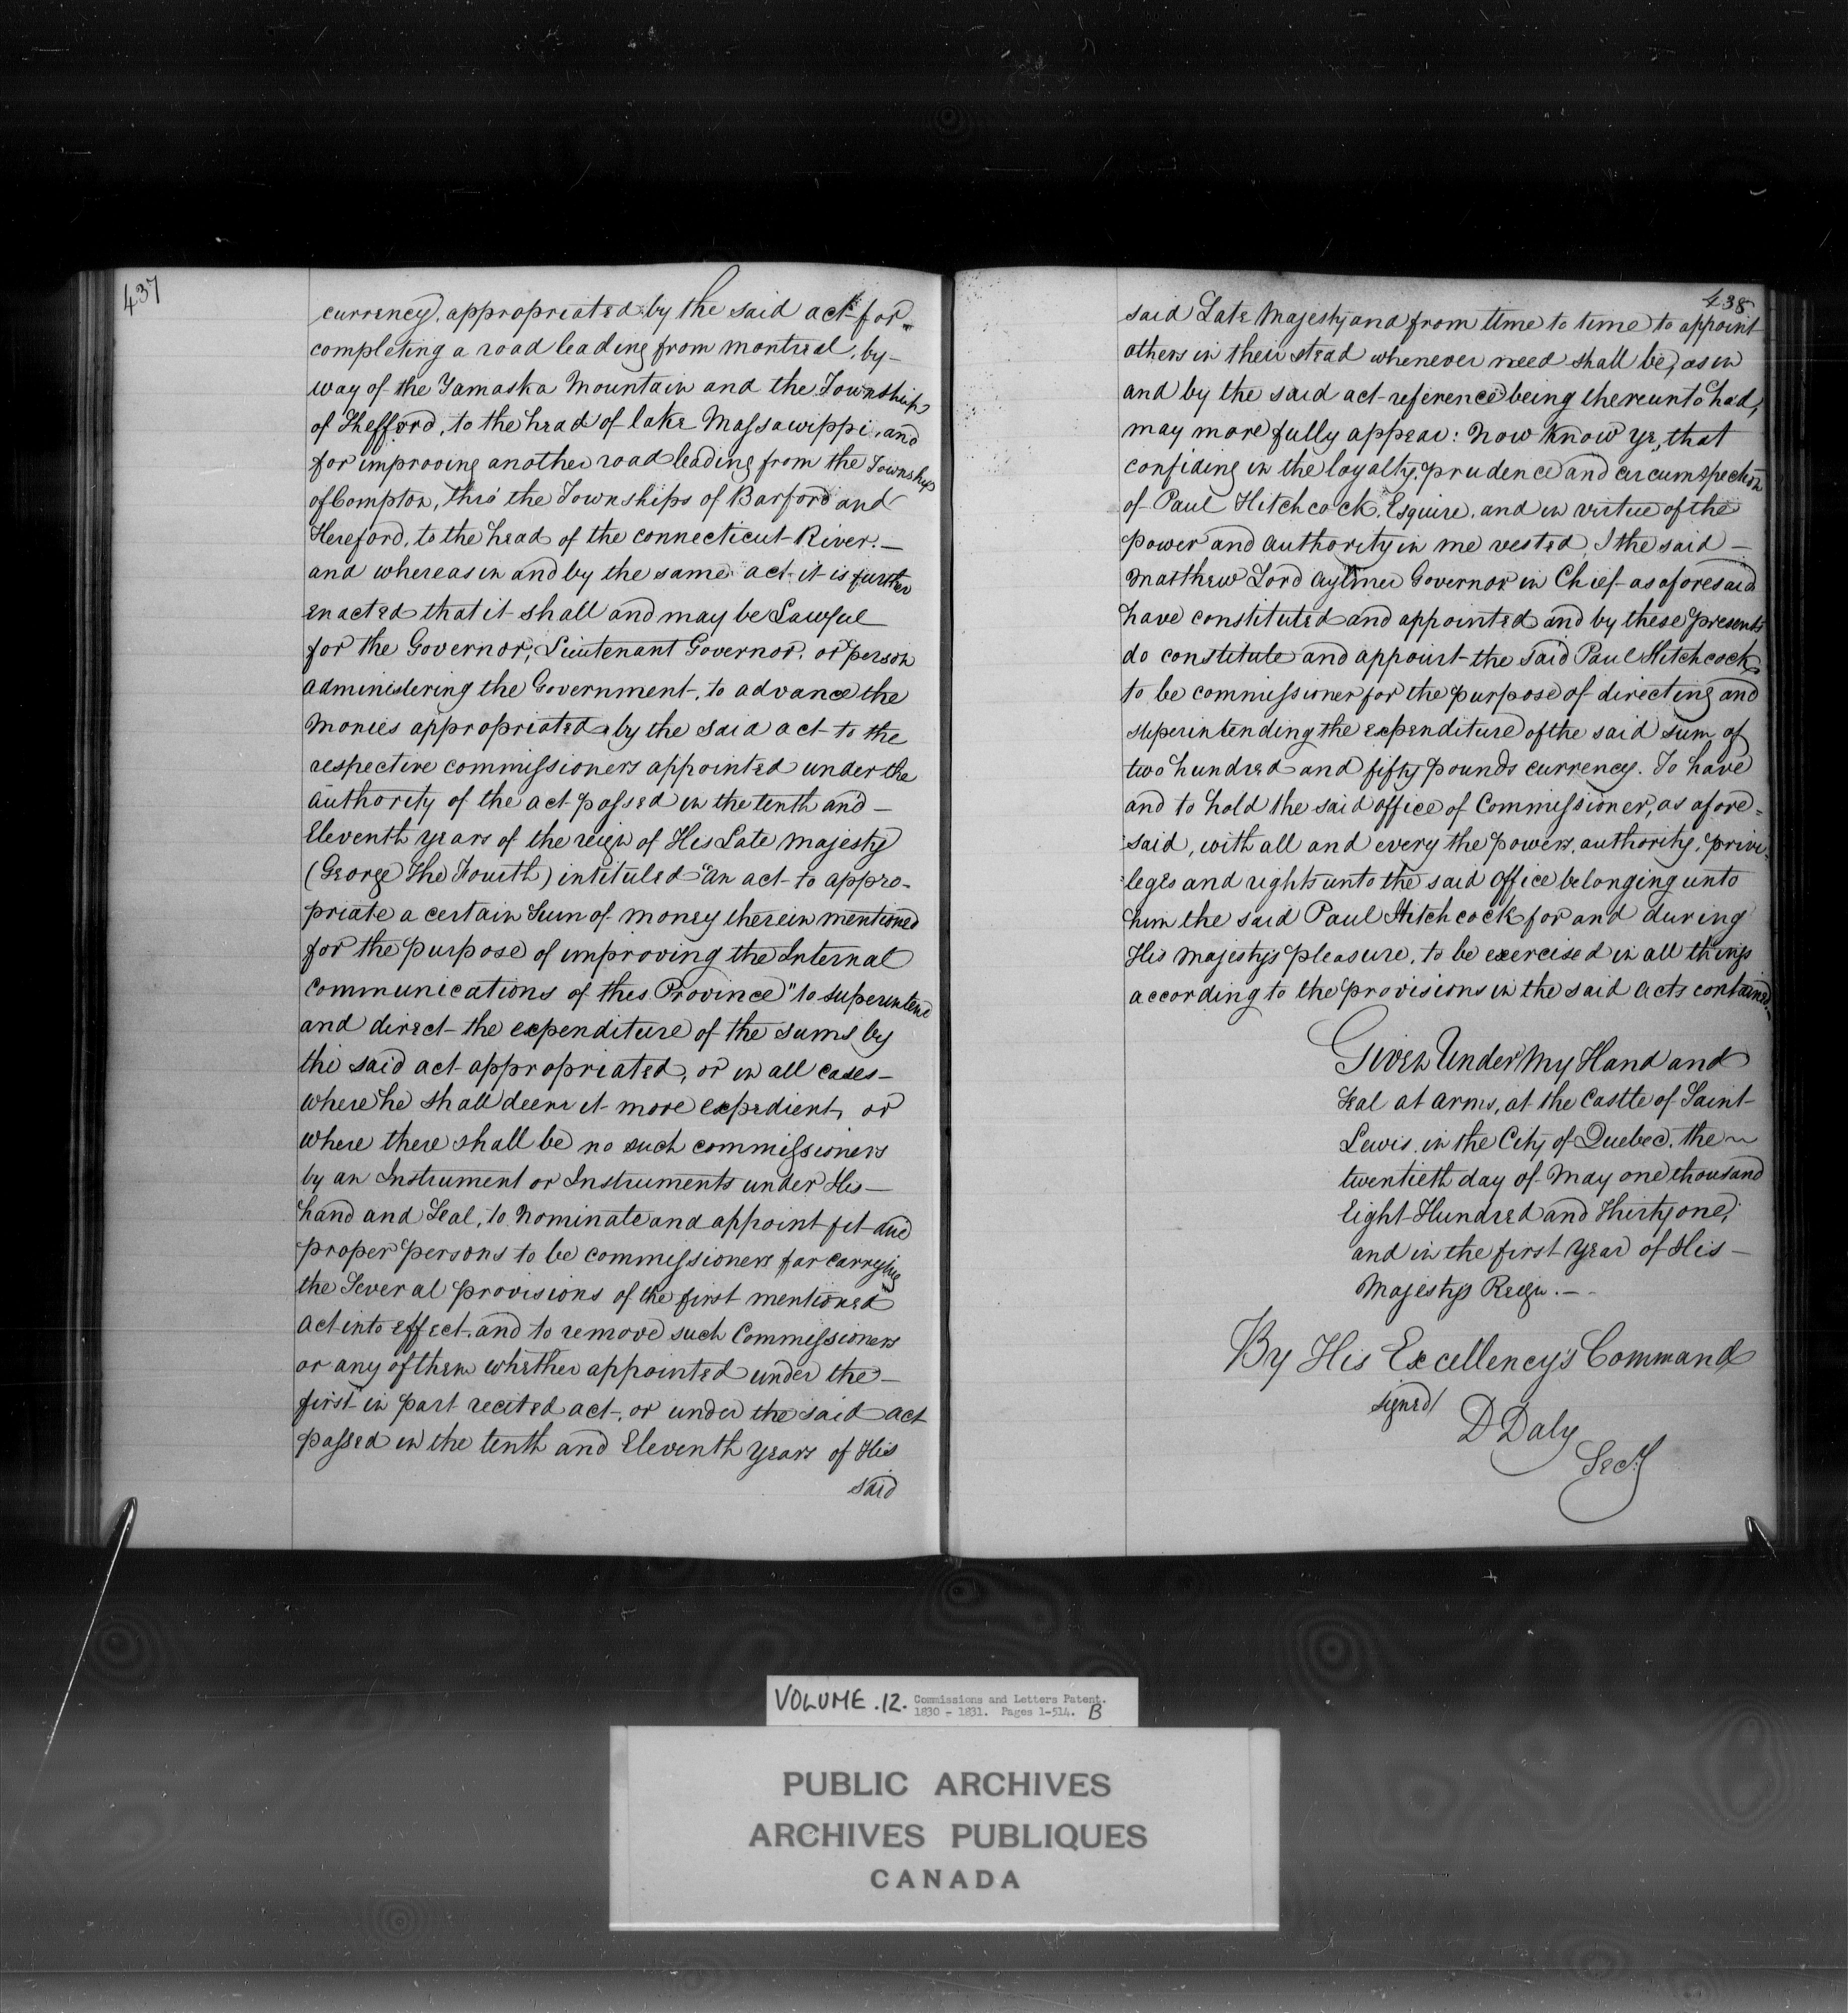 437
currency, appropriated by the said act for
completing a road leading from Montreal, by
way of the Yamaska Mountain and the Township
of Shefford, to the head of lake Massawippi, and
for improving another road leading from the Township
of Compton, thro' the Townships of Barford and
Hereford, to the head of the Connecticut River. —
and whereas in and by the same act it is further
enacted that it shall and may be Lawful
for the Governor, Lieutenant Governor, or person
administering the Government, to advance the
Monies appropriated by the said act to the
respective commissioners appointed under the
authority of the act passed in the tenth and —
Eleventh years of the reign of His Late Majesty
(George The Fourth) intituled "an act to appro-
priate a certain Sum of money therein mentioned
for the purpose of improving the Internal
Communications of this Province" to superintend
and direct the expenditure of the sums by
the said act appropriated, or in all cases —
where he shall deem it more expedient, or
where there shall be no such commissioners
by an Instrument or Instruments under His —
hand and Seal, to Nominate and appoint fit and
proper persons to be commissioners for carrying
the Several provisions of the first mentioned
act into effect, and to remove such Commissioners
or any of them whether appointed under the —
first in part recited act, or under the said act
passed in the tenth and Eleventh years of His
said
438
said Late Majesty and from time to time to appoint
others in their stead whenever need shall be, as in
and by the said act reference being thereunto had,
may more fully appear: Now Know Ye, that
confiding in the loyalty, prudence and circumspection
of Paul Hitchcock, Esquire, and in virtue of the
power and authority in me vested, I the said —
Matthew Lord Aylmer Governor in Chief as aforesaid
have constituted and appointed and by these presents
do constitute and appoint the said Paul Hitchcock
to be commissioner for the purpose of directing and
superintending the expenditure of the said sum of
two hundred and fifty pounds currency. To have
and to hold the said office of Commissioner, as afore=
=said, with all and every the powers, authority, privi=
=leges and rights unto the said Office belonging unto
him the said Paul Hitchcock for and during
His Majesty's pleasure, to be exercised in all things
according to the provisions in the said acts contained. —
Given Under My Hand and
Seal at arms, at the Castle of Saint
Lewis in the City of Quebec, the
twentieth day of May one thousand
Eight Hundred and Thirty one,
and in the first year of His —
Majesty's Reign. —
By His Excellency's Command
signed/
D Daly
Secy
VOLUME .12. Commissions and Letters Patent.
1830 - 1831. Pages 1-514. B
PUBLIC ARCHIVES
ARCHIVES PUBLIQUES
CANADA